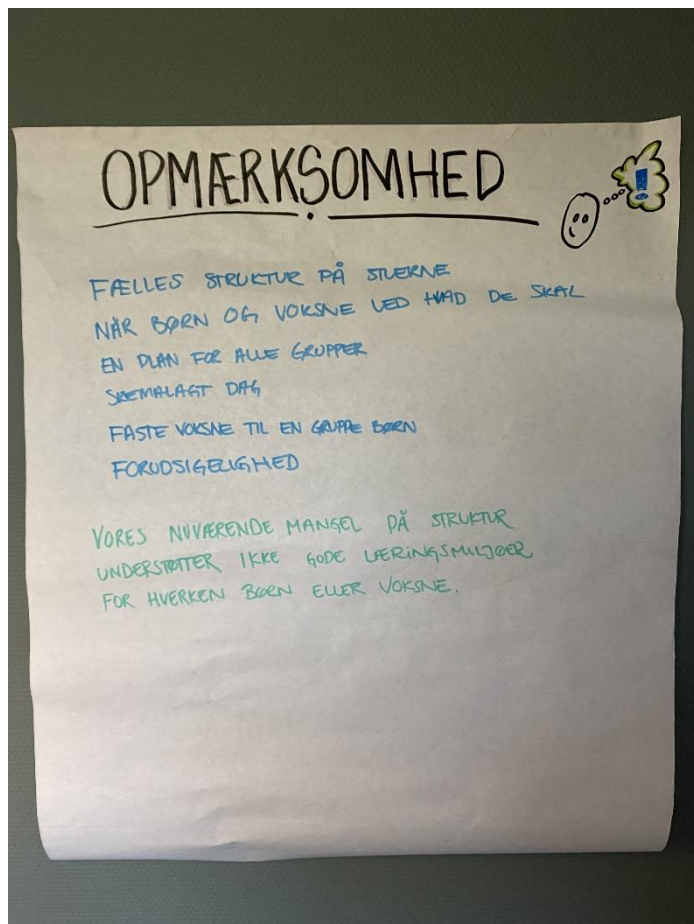 OPMÆRKSOMHED
!
FÆLLES STRUKTUR PÅ STUERNE
NÅR BØRN OG VOKSNE VED HVAD DE SKAL
EN PLAN FOR ALLE GRUPPER
SKEMALAGT DAG
FASTE VOKSNE TIL EN GRUPPE BØRN
FORUDSIGELIGHED
VORES NUVÆRENDE MANGEL PÅ STRUKTUR
UNDERSTØTTER IKKE GODE LÆRINGSMILJØER
FOR HVERKEN BØRN ELLER VOKSNE.